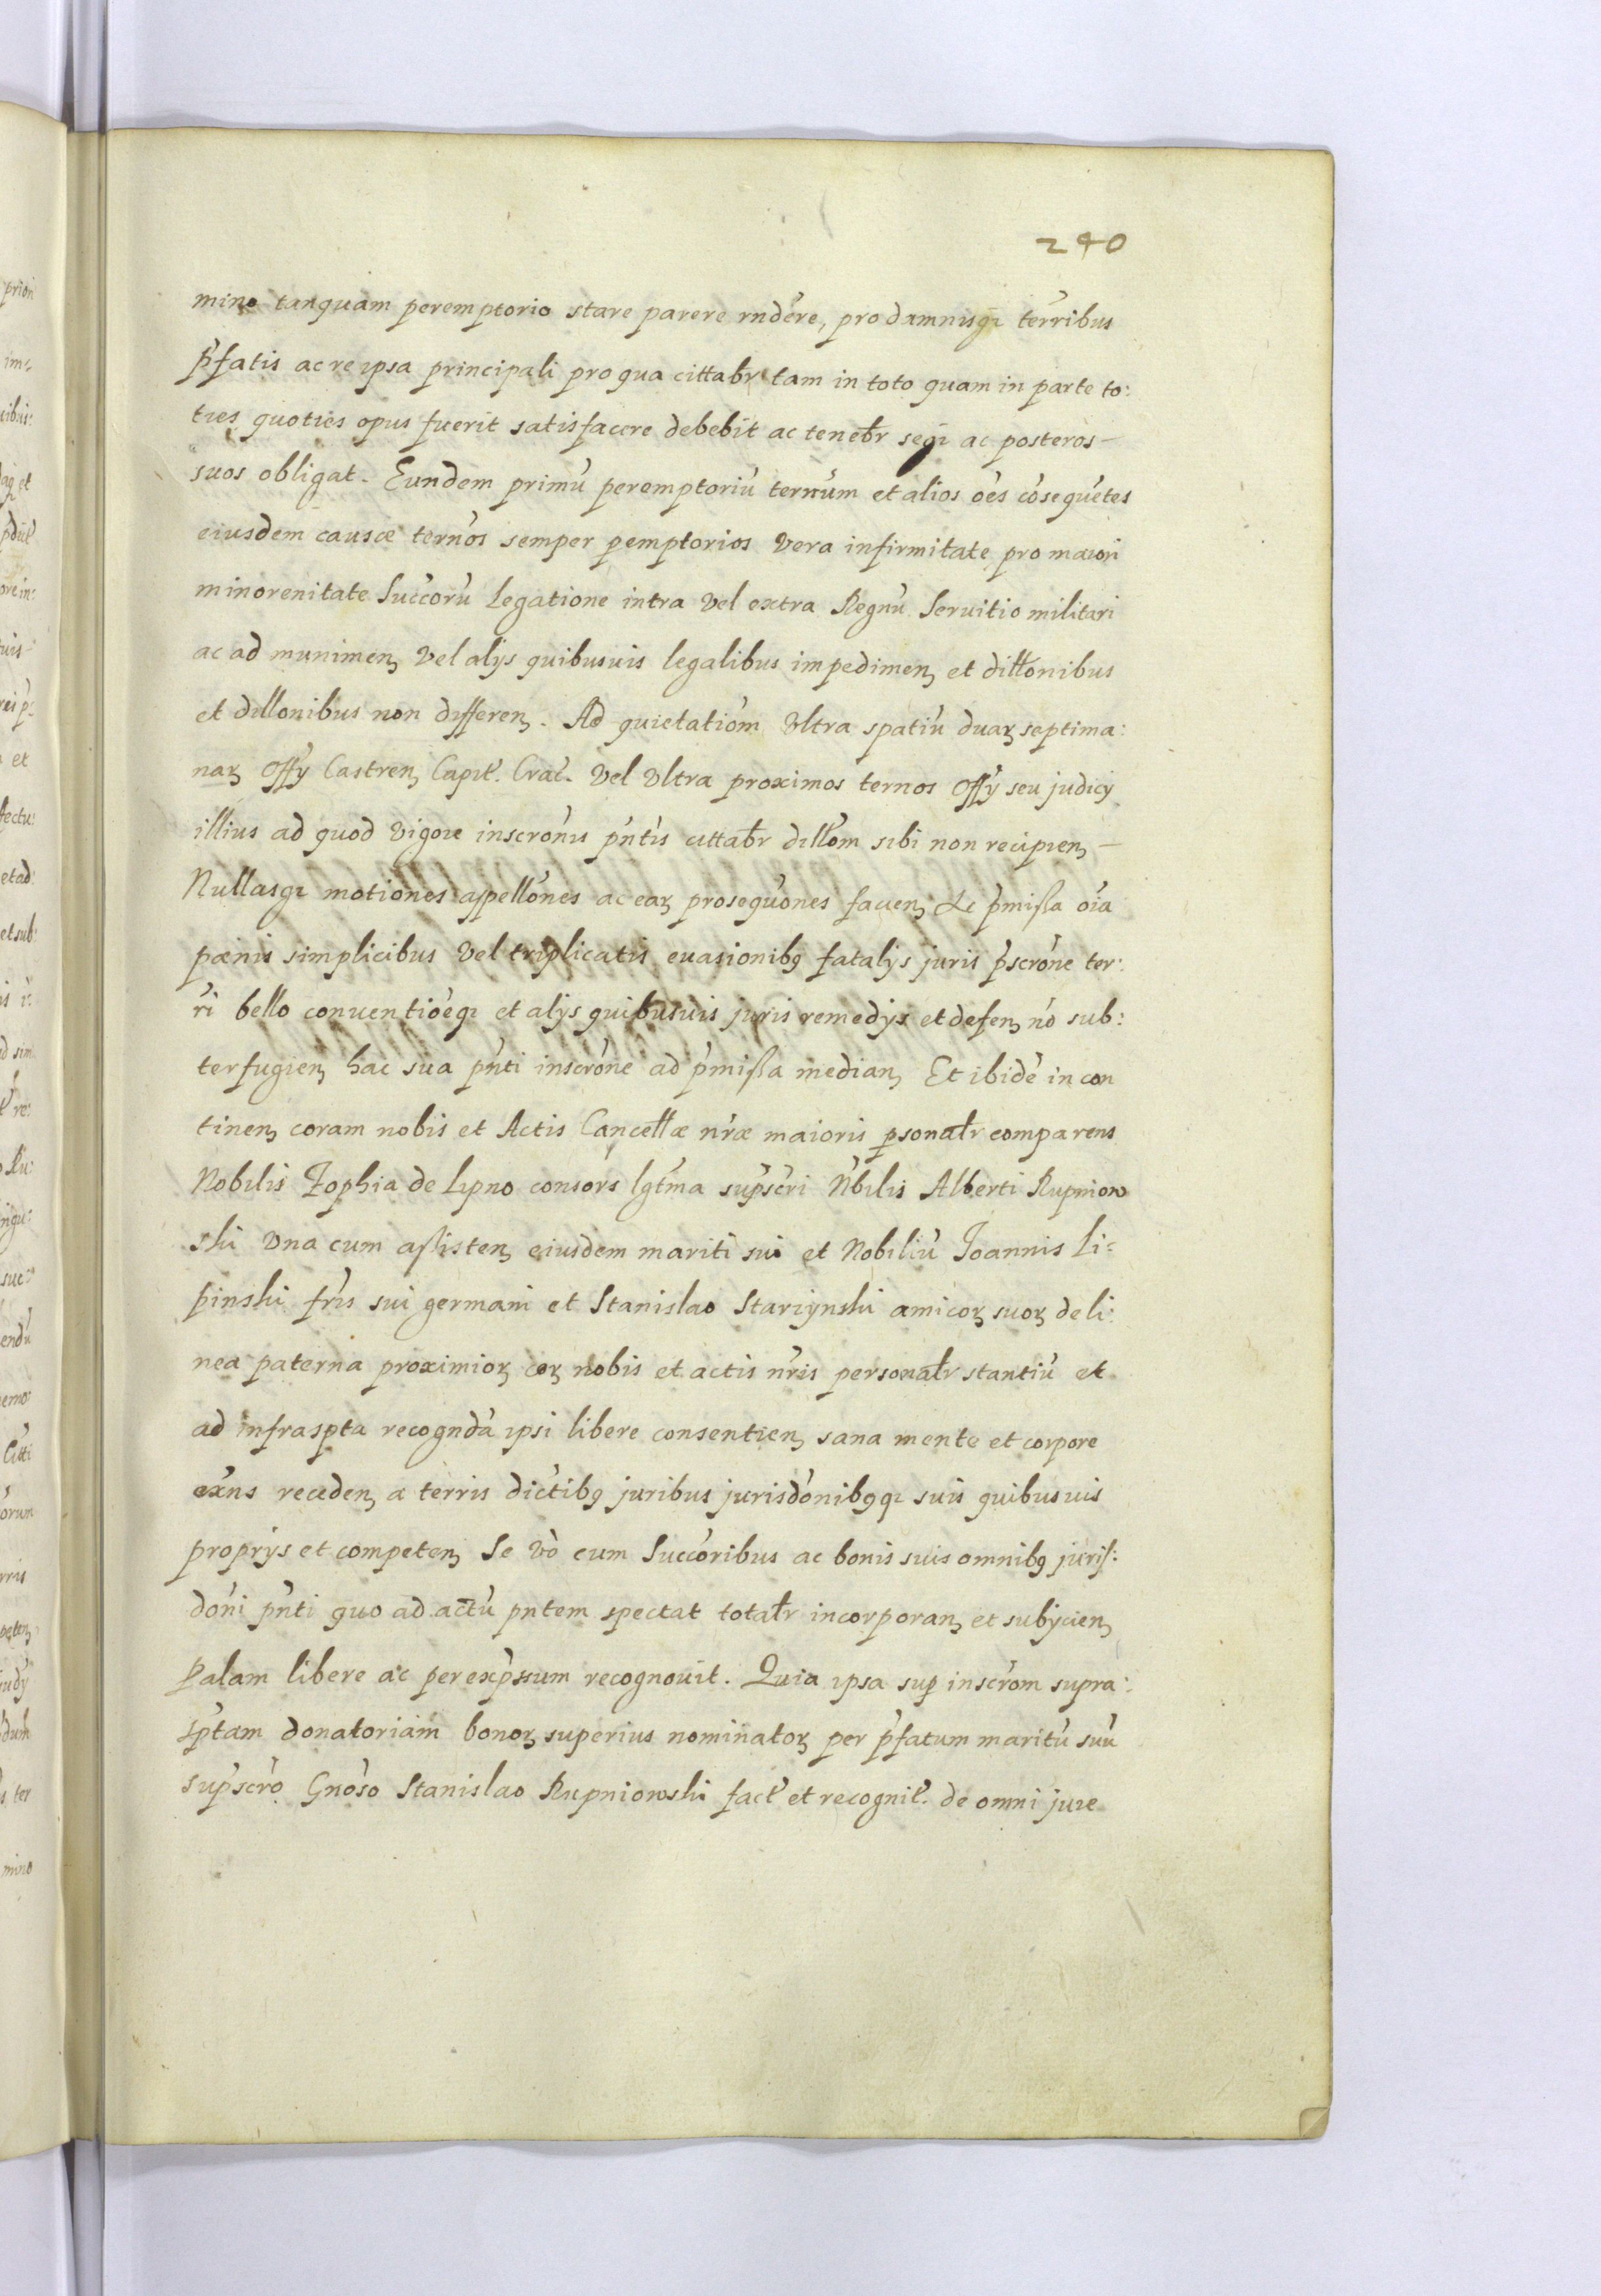 240
mino tanquam peremptorio stare parere rndére, pro damnisqꝫ térribus
p̃fatis ac re ipsa principali pro qua cittabr̃ tam in toto quam in parte to:
ties quoties opus fuerit satisfacere debebit ac tenebr̃ seqꝫ ac posteros –
suos obligat. Eundem primũ peremptoriũ ternum et alios oẽs cõsequẽtes
eiusdem causæ ternõs semper pemptorios Vera infirmitate pro maiori
minorenitate Succorũ Legatione intra Vel extra Regnũ Seruitio militari
ac ad munimenꝫ Vel alys quibusuis legalibus impedimenꝫ et dillonibus
et dillonibus non differenꝫ. Ad quietatiõm Vltra spatiũ duaꝝ septima:
naꝝ Offy Castrenꝫ Capit̃. Crac̃. Vel Vltra proximos ternos Offy seu judicy
illius ad quod Vigore inscrõnis pñtis cittabr̃ dillõm sibi non recipienꝫ –
Nullasqꝫ motiones appellõnes ac eaꝝ prosequõnes facienꝫ Et p̃missa oĩa
pænis simplicibus Vel triplicatis euasionibꝰ fatalys juris p̃scrõne ter:
rĩ bello conuentiõeqꝫ et alys quibusuis juris remedys et defenꝫ nõ sub:
terfugienꝫ hac sua pñti inscrõne ad p̃missa medianꝫ Et ibidẽ in con
tinenꝫ coram nobis et Actis Cancellæ nr̃æ maioris psonalr̃ comparens
Nobilis Zophia de Lipno consors lgt̃ma sup̃scri Nb̃ilis Alberti Rupniow
ski Vna cum assistenꝫ eiusdem mariti sui et Nobiliũ Joannis Li:
pinski fr̃is sui germani et Stanislao Starzynski amicoꝝ suoꝝ de li:
nea paterna proximioꝝ coꝝ nobis et actis nr̃is personalr̃ stantiũ et
ad infraspta recogndã ipsi libere consentienꝫ sana mente et corpore
exñs recedenꝫ a terris dictibꝰ juribus jurisdõnibꝰqꝫ suis quibusuis
proprys et competenꝫ Se vò cum Succõribus ac bonis suis omnibꝰ juris:
dõni pñti quo ad actũ pntem spectat totalr̃ incorporanꝫ et subycienꝫ
Palam libere ac per exp̃ssum recognouit. Quia ipsa sup inscrõm supra:
sptam donatoriam bonoꝝ superius nominatoꝝ per p̃fatum maritũ suũ
sup̃scrõ Gnõso Stanislao Rupniowski fact̃ et recognit̃. de omni jure